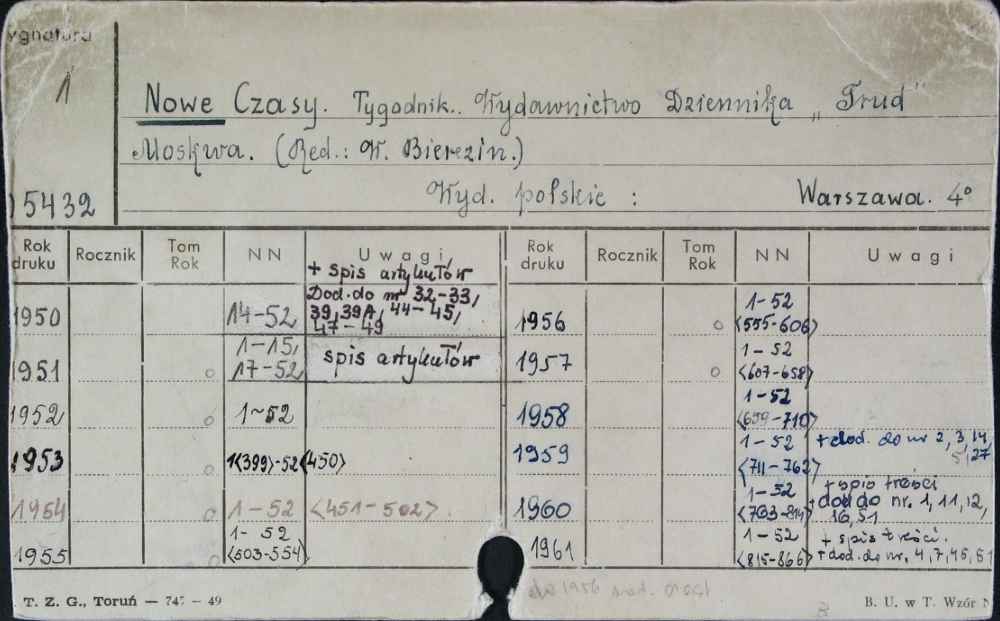 ygnatura
1
Nowe Czasy. Tygodnik. Wydawnictwo Dziennika „Trud"
Moskwa. (Red.: W. Bierezin.)
5432
Wyd. polskie : Warszawa. 4°
Rok druku Rocznik Tom Rok NN Uwagi
1950 14-52 + spis artykułów Dod. do nr 32-33, 39, 39A, 44-45, 47-49
1951 o 1-15, 17-52 spis artykułów
1952 o 1-52
1953 o 1<399>-52<450>
1954 o 1-52 <451-502>.
1955 o 1-52 <503-554>
Rok druku Rocznik Tom Rok NN Uwagi
1956 o 1-52 <555-606>
1957 o 1-52 <607-658>
1958 1-52 <659-710>
1959 1-52 <711-762> + dod. do nr 2, 3, 14, 5, 27
1960 1-52 <763-814> + spis treści + dod do nr. 1, 11, 12, 16, 51
1961 1-52 <815-866> + spis treści. + dod. do nr. 4, 7, 45, 51
T. Z. G., Toruń — 747 - 49
B. U. w T. Wzór